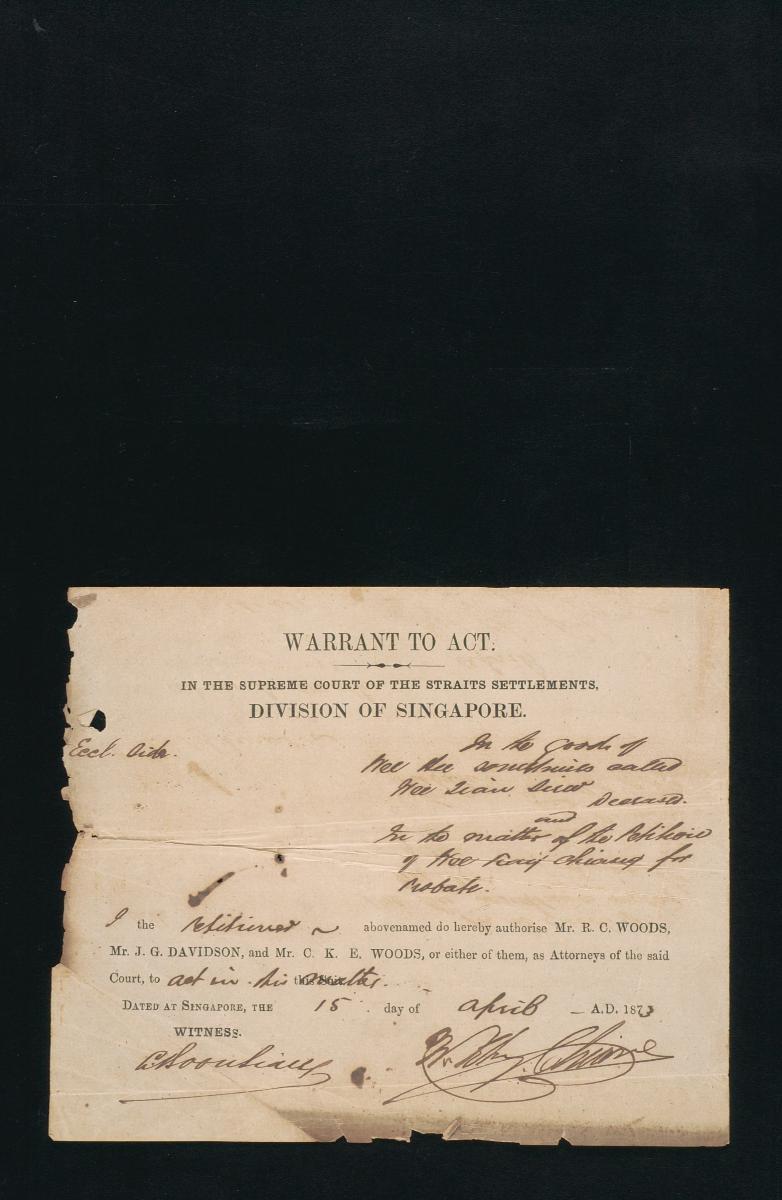 WARRANT TO ACT.
IN THE SUPREME COURT OF THE STRAITS SETTLEMENTS,
DIVISION OF SINGAPORE.
Eccl. Side.
In the goods of
Wee Hee sometimes called
Wee
Deceased.
and
In the matter of the Petition
of Wee Chiang for
Probate.
I the Petitioner abovenamed do hereby authorise Mr. R. C. WOODS,
Mr. J. G. DAVIDSON, and Mr. C. K. E. WOODS, or either of them, as Attorneys of the said
Court, to act in this matter.
DATED AT SINGAPORE, THE 15 day of April A.D. 1873
WITNESS.